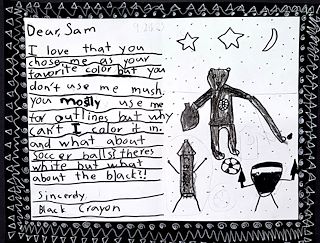 Dear, Sam
I love that you
chose me as your
favorite color but you
don't use me mush.
you mostly use me
for outlines but why
can't I color it in.
and what about
soccer balls! theres
white but what
about the black?!
Sincerdy
Black Crayon